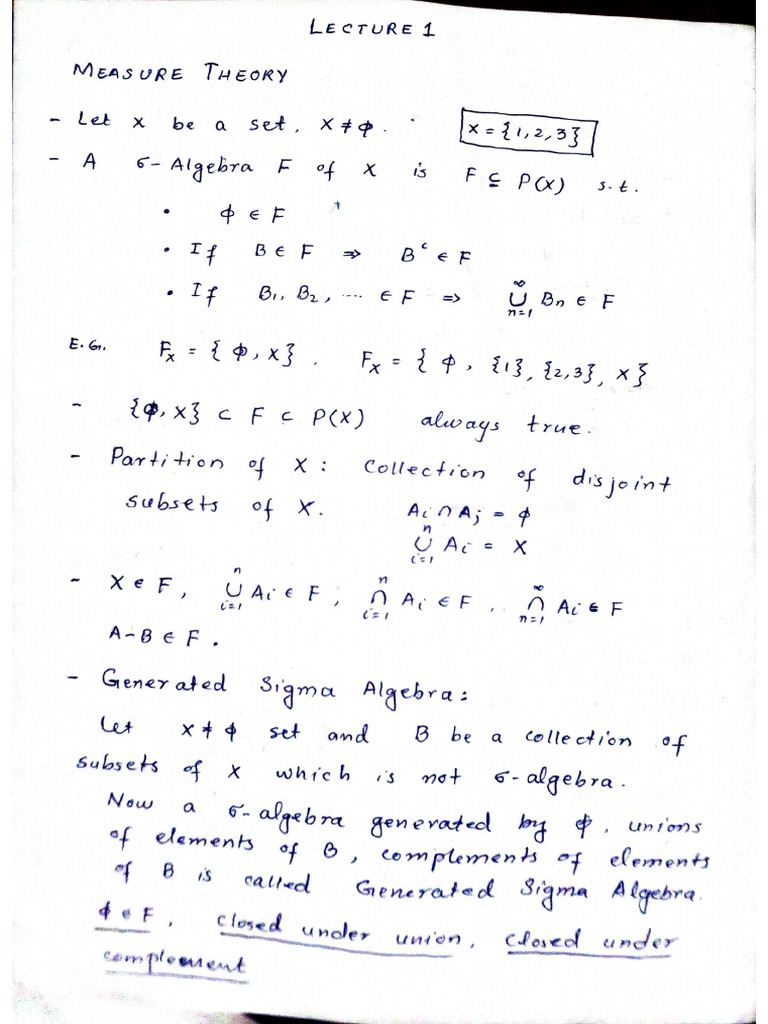 LECTURE 1
MEASURE THEORY
- Let X be a set, X ≠ ϕ. X = {1,2,3}
- A σ-Algebra F of X is F ⊆ P(X) s.t.
• ϕ ∈ F
• If B ∈ F ⇒ Bᶜ ∈ F
• If B₁, B₂, ---- ∈ F ⇒ ∞∪n=1 Bn ∈ F
E.G. Fx = {ϕ, X}. Fx = {ϕ, {1}, {2,3}, X}
- {ϕ, X} ⊂ F ⊂ P(X) always true.
- Partition of X: Collection of disjoint
subsets of X. Ai ∩ Aj = ϕ
n∪i=1 Ai = X
- X ∈ F, n∪i=1 Ai ∈ F, n∩i=1 Ai ∈ F, ∞∩n=1 Ai ∈ F
A-B ∈ F.
- Generated Sigma Algebra:
Let X ≠ ϕ set and B be a collection of
subsets of X which is not σ-algebra.
Now a σ-algebra generated by ϕ, unions
of elements of B, complements of elements
of B is called Generated Sigma Algebra.
ϕ ∈ F, closed under union, closed under
complement